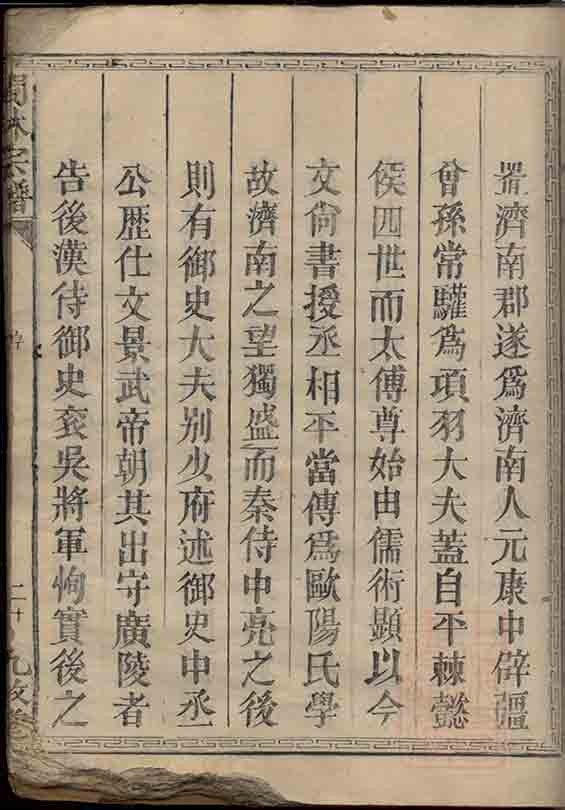 置濟南郡遂爲濟南人元康中僻疆
曾孫常驩爲項羽大夫蓋自平棘懿
侯四世而太傅尊始由儒術顯以今
文尙書授丞相平當傳爲歐陽氏學
故濟南之望獨盛而秦侍中亮之後
則有御史大夫别少府述御史中丞
公歷仕文景武帝朝其出守廣陵者
告後漢待御史衮吳將軍恂實後之
林宗譜